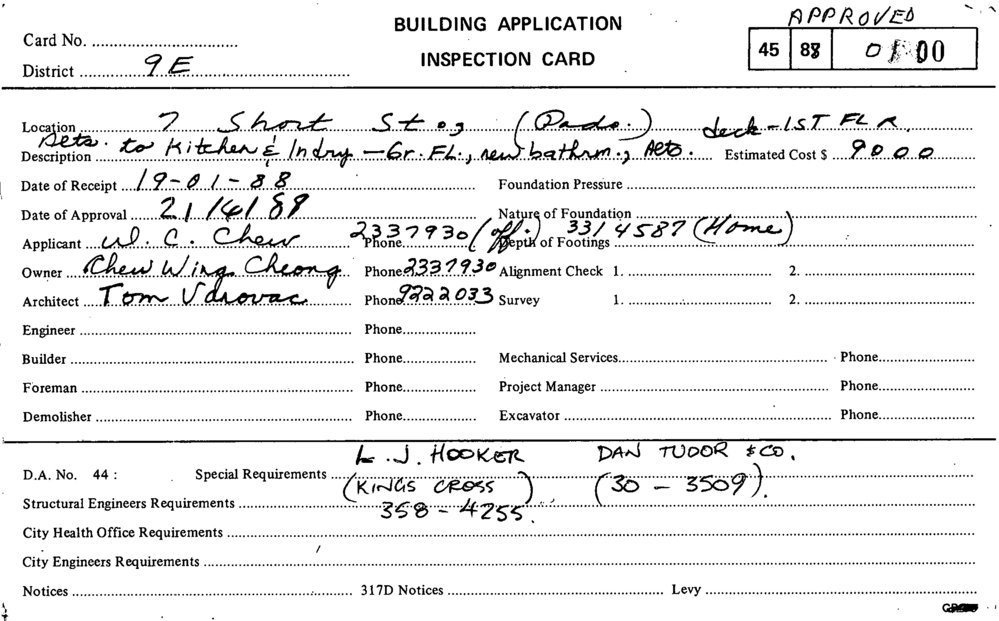 APPROVED
BUILDING APPLICATION
Card No.
45 88 00
INSPECTION CARD
District 9E
Location 7 Short St. (Pado.) deck - 1ST FLR.
Description Aeto. to Kitchen & lndry - Gr. FL., new bathrm., Aeto. Estimated Cost $ 9000
Date of Receipt 19-01-88 Foundation Pressure
Date of Approval 21/4/88 Nature of Foundation
Applicant W. C. Chew Phone 2337930 (off.) 3314587 (Home) Depth of Footings
Owner Chew Wing Cheong Phone 2337930 Alignment Check 1. 2.
Architect Tom Udrovac Phone 9222033 Survey 1. 2.
Engineer Phone
Builder Phone Mechanical Services Phone
Foreman Phone Project Manager Phone
Demolisher Phone Excavator Phone
L.J. HOOKER DAN TUDOR & CO.
D.A. No. 44 : Special Requirements
(KINGS CROSS) (30 - 3509).
Structural Engineers Requirements
358-4255.
City Health Office Requirements
City Engineers Requirements
Notices 317D Notices Levy